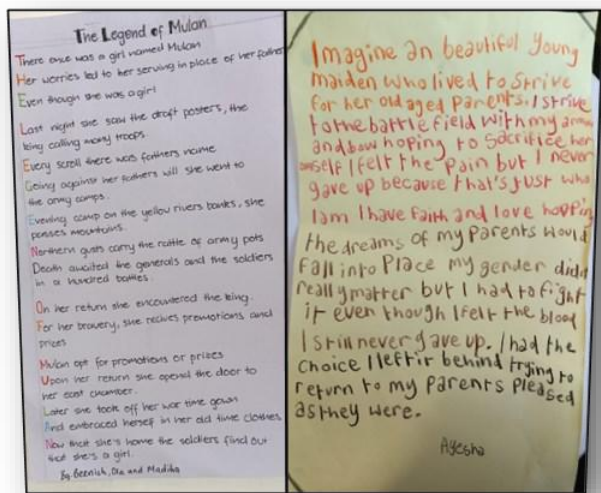 The Legend of Mulan
There once was a girl named Mulan
Her worries led to her serving in place of her father
Even though she was a girl
Last night she saw the draft posters, the
king calling many troops.
Every scroll there was fathers name
Going against her fathers will she went to
the army camps.
Evening camp on the yellow rivers banks, she
passes mountains.
Northern gusts carry the rattle of army pots
Death awaited the generals and the soldiers
in a hundred battles.
On her return she encountered the king.
For her bravery, she recives premotions and
prizes
Mulan opt for promotions or prizes
Upon her return she opend the door to
her east chamber.
Later she took off her war time gown
And embraced herself in her old time clothes
Now that she's home the soldiers find out
that she's a girl.
By Beenish, Ola and Madiha
Imagine an beautiful young
maiden who lived to strive
for her old aged parents. I strive
to the battle field with my
and bow hoping to sacrifice her
self I felt the pain but I never
gave up because that's just who
I am I have faith and love hopping
the dreams of my parents would
fall into place my gender did
really matter but I had to fight
it even though I felt the blood
I still never gave up. I had the
choice I left it behind trying to
return to my parents pleased
as they were.
Ayesha